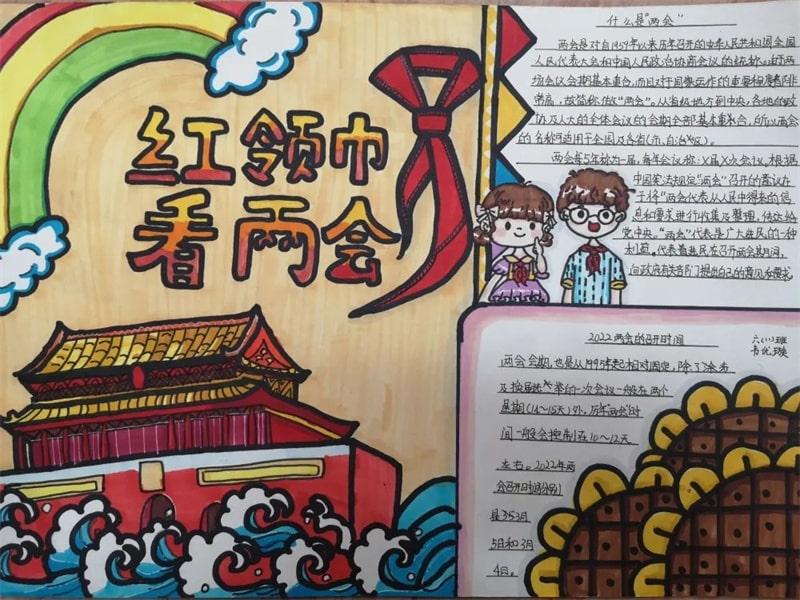 红领巾
看两会
什么是“两会”
两会是对自1959年以来历年召开的中华人民共和国全国
人民代表大会和中国人民政治协商会议的统称。由于两
场会议会期基本重合,而且对于国家运作的重要程度都非
常高,故简称做“两会”。从省级地方到中央,各地的政
协及人大的全体会议的会期全部基本重合,所以两会
的名称可适用于全国及各省(市、自治区)。
两会每5年称为一届,每年会议称X届X次会议。根据
中国宪法规定“两会”召开的意义在
于将“两会代表从人民中得来的信
息和要求进行收集及整理,传达给
党中央。“两会”代表是广大选民的一种
代表着选民在召开两会其间,
向政府有关部门提出自己的意见和要求
2022两会的召开时间
六(1)班
两会会期,也是从1995年起相对固定,除了
及换届选举的一次会议一般在两个
星期(14~15天)外,历年两会时
间一般会控制在10~12天
左右。2022年两
会召开时间分别
是3月
5日和3月
4日。